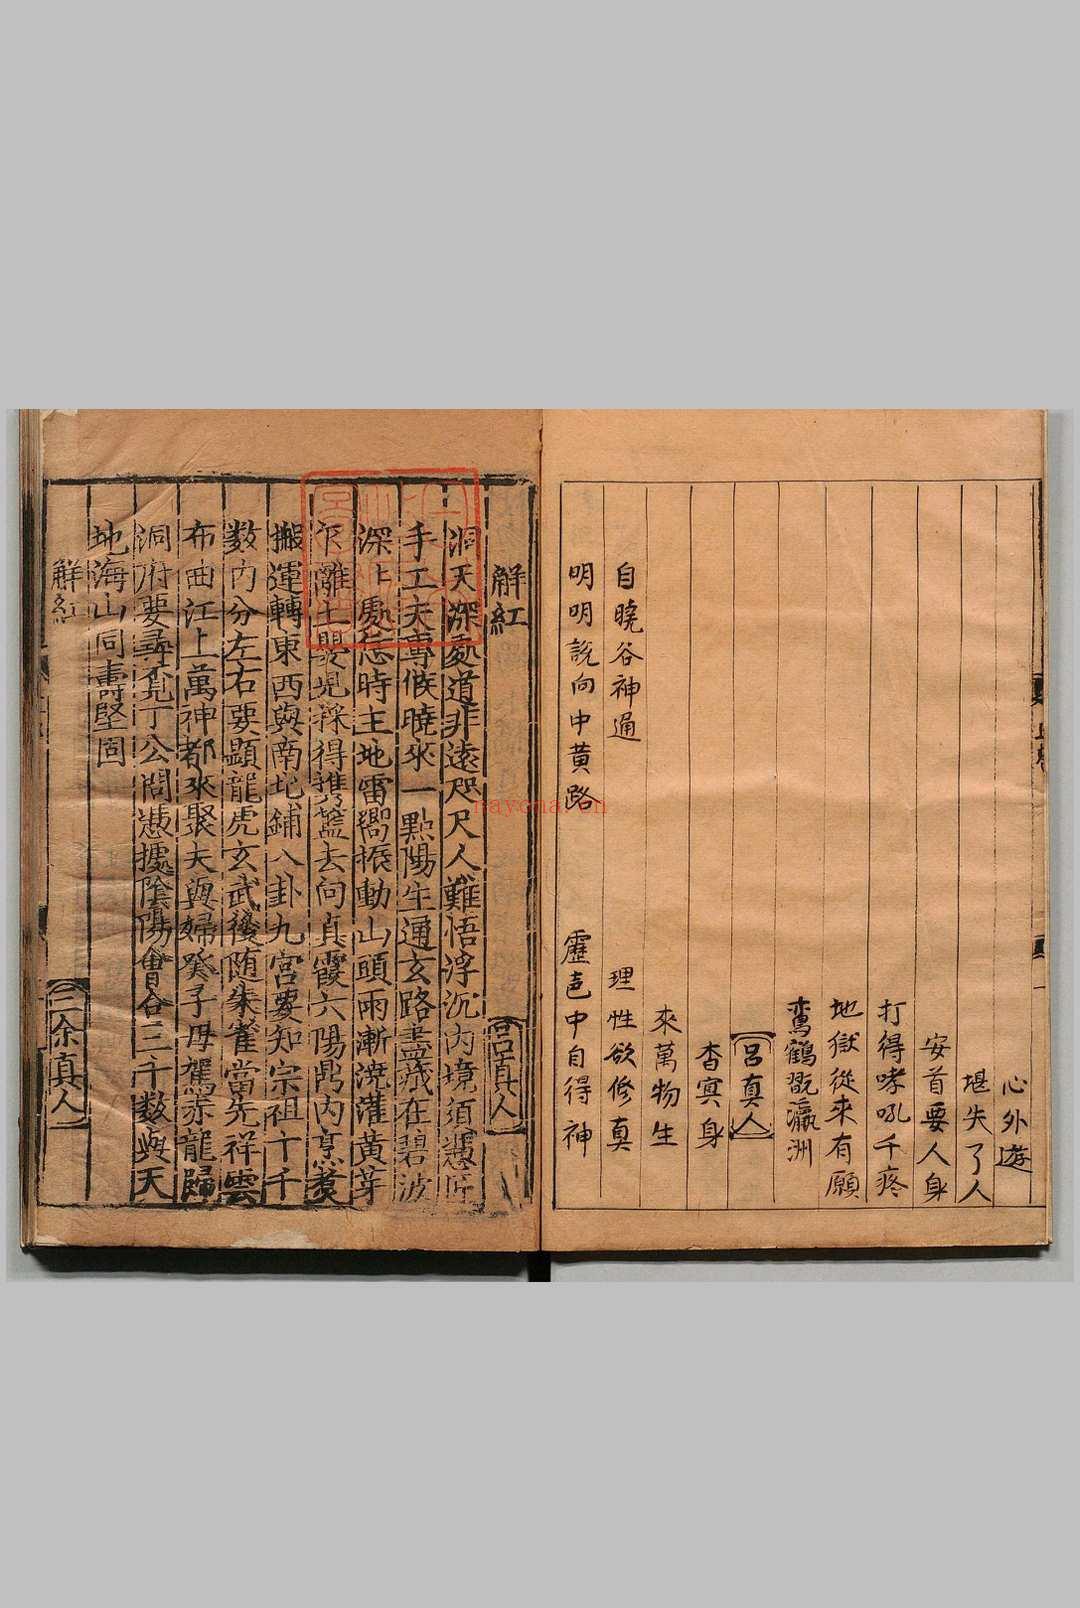 心外遊
堪失了人
安首要人身
打得哮吼千疼
地獄從來有願
鸞鶴翫瀛洲
呂真人
杳寞身
來萬物生
自曉谷神通 理性欲修真
明明說向中黃路 靂 中自得神
解紅 呂真人
洞天深處道非遠咫尺人難悟浮沉內境須憑匠
手工夫專候曉來一點陽生通玄路盡藏在碧波
深 處 時主地雷嚮振動山頭雨漸澆灌黃芽
離 採得携籃去向真霞六陽鼎內烹煑
搬運轉東西與南北鋪八卦九宮要知宗祖十千
数內分左右要顯龍虎玄武後随朱雀當先祥雲
布曲江上萬神都來聚夫與婦癸子母駕赤龍歸
洞府要尋 丁公問憑據陰陽會合三千数與天
地海山同壽堅固
解紅 三余真人
nayona.cn